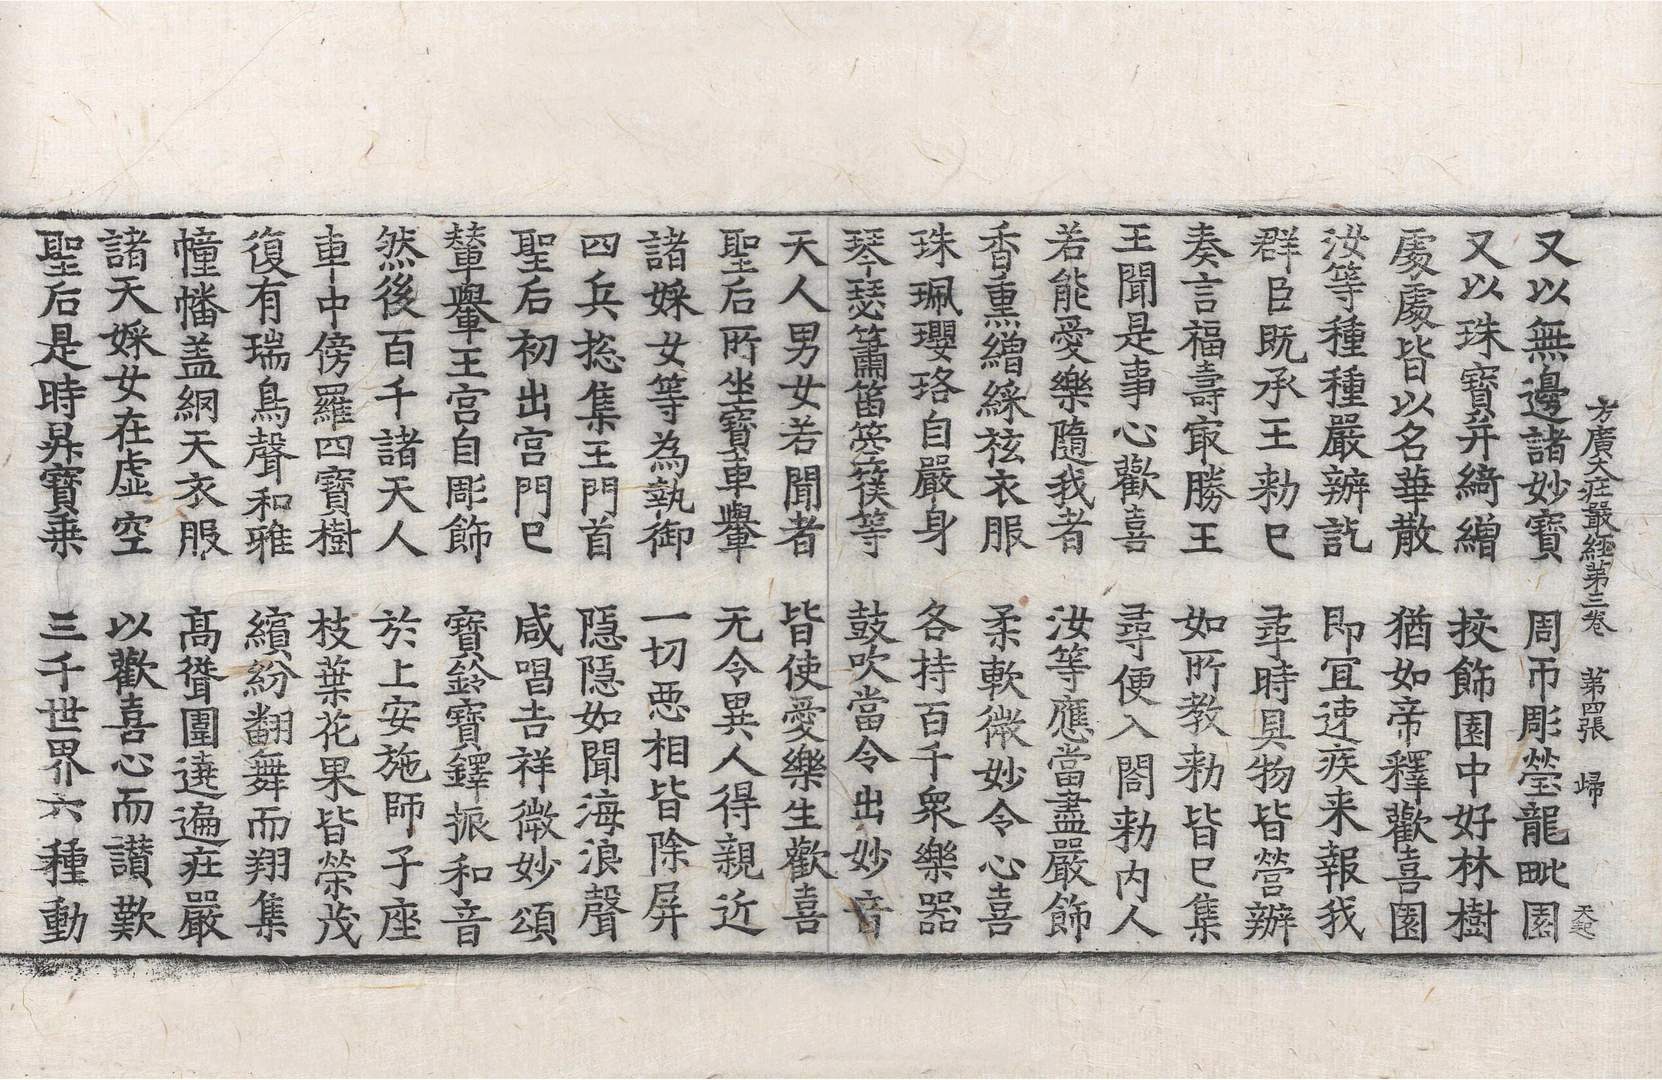 方廣大莊嚴經第三卷　第四張　歸
又以無邊諸妙寶　周帀彫瑩龍毗園
又以珠寶幷綺繒　挍飾園中好林樹
處處皆以名華散　猶如帝釋歡喜園
汝等種種嚴辦訖　即宜速疾来報我
群臣既承王勑已　尋時具物皆營辦
奏言福壽㝡勝王　如所教勑皆已集
王聞是事心歡喜　尋便入閤勑內人
若能愛樂隨我者　汝等應當盡嚴飾
香熏繒綵袨衣服　柔軟微妙令心喜
珠珮瓔珞自嚴身　各持百千衆樂器
琴瑟簫笛箜篌等　鼓吹當令出妙音
天人男女若聞者　皆使愛樂生歡喜
聖后所坐寶車轝　无令異人得親近
諸婇女等為執御　一切惡相皆除屏
四兵揔集王門首　隱隱如聞海浪聲
聖后初出宮門已　咸唱吉祥微妙頌
輦轝王宮自彫飾　寶鈴寶鐸振和音
然後百千諸天人　於上安施師子座
車中傍羅四寶樹　枝葉花果皆榮茂
復有瑞鳥聲和雅　繽紛翻舞而翔集
幢幡盖網天衣服　高聳圍遶遍莊嚴
諸天婇女在虛空　以歡喜心而讚歎
聖后是時昇寶乘　三千世界六種動